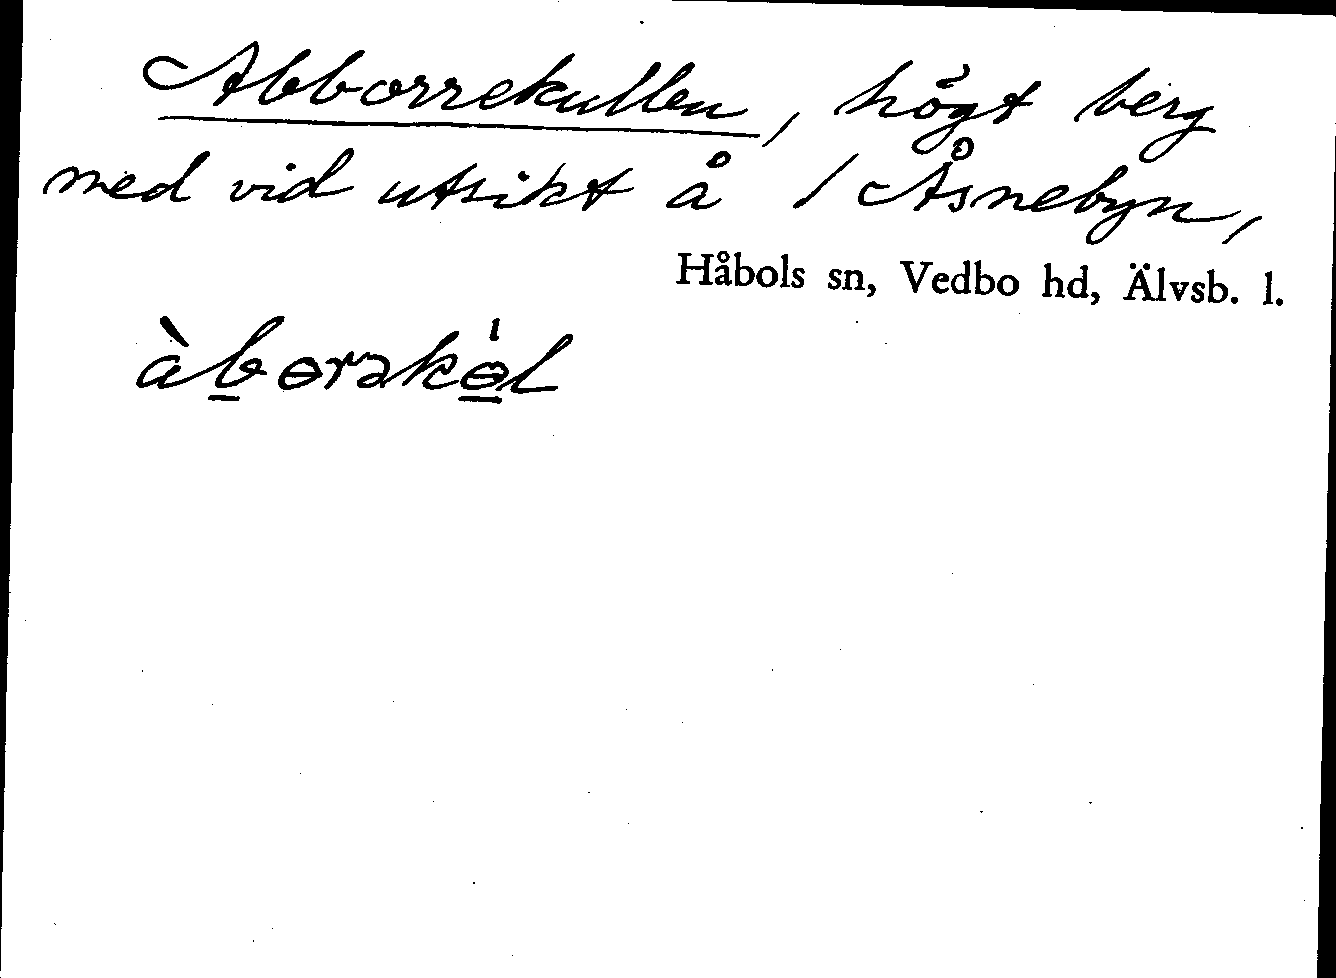 Abborrekullen, högt berg
med vid utsikt å / Åsnebyn,
Håbols sn, Vedbo hd, Älvsb. l.
àb̲ɵrəkɵ̲́l